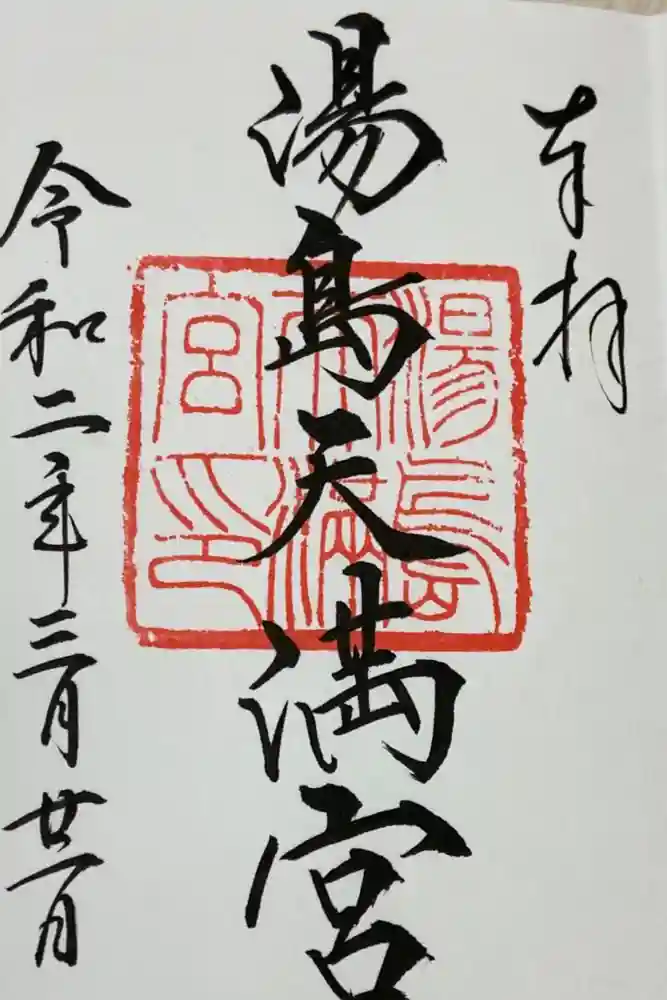 奉拝
湯島天満宮
令和二年三月廿一日
湯島
天満
宮印